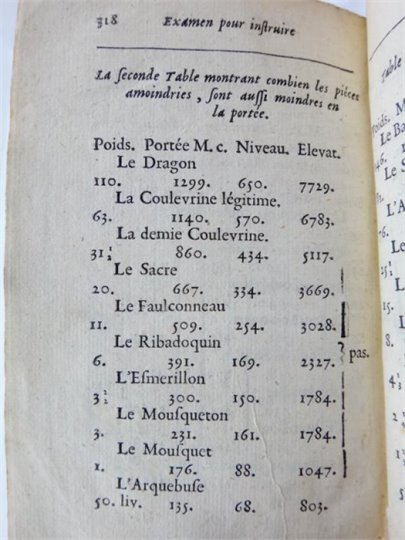 318 Examen pour inſtruire
La ſeconde Table montrant combien les pièces
amoindries, ſont auſſi moindres en
la portée.
Poids. Portée M. c. Niveau. Elevat.
Le Dragon
110. 1299. 650. 7729.
La Coulevrine légitime.
63. 1140. 570. 6783.
La demie Coulevrine.
31½ 860. 434. 5117.
Le Sacre
20. 667. 334. 3669.
Le Faulconneau
11. 509. 254. 3028.
Le Ribadoquin
6. 391. 169. 2327. pas.
L'Eſmerillon
3½ 300. 150. 1784.
Le Mouſqueton
3. 231. 161. 1784.
Le Mouſquet
1. 176. 88. 1047.
L'Arquebuſe
50. liv. 135. 68. 803.
Table
Poids. M
Le